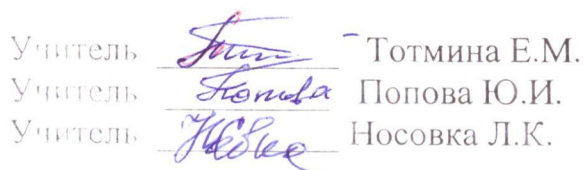 Учитель Тотмина Е.М.
Учитель Попова Попова Ю.И.
Учитель Носовка Л.К.